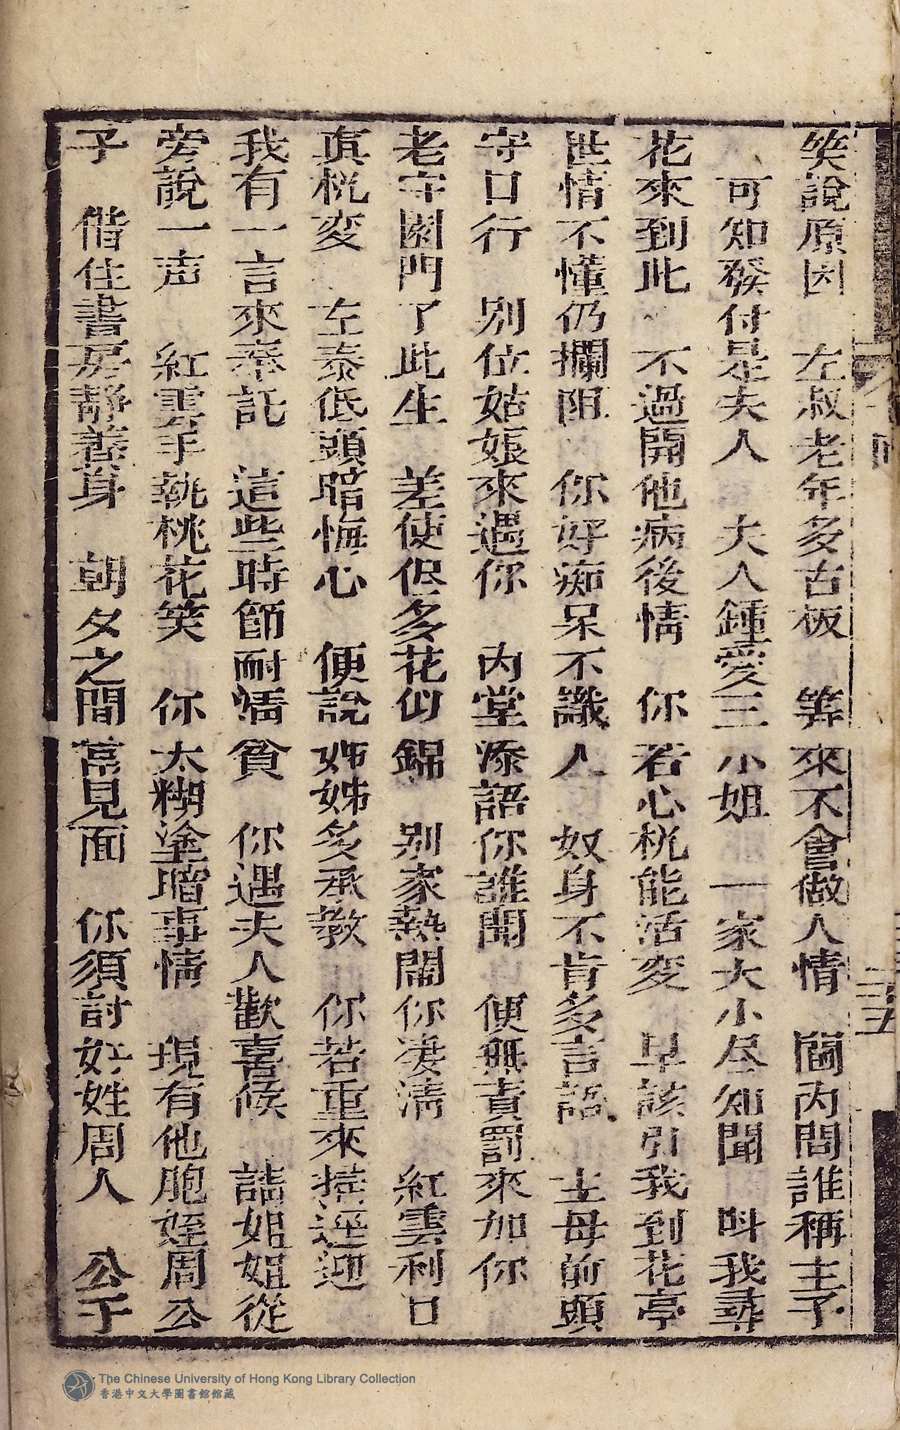 笑說原因　左叔老年多古板　筭來不會做人情　閫內問誰稱主子
可知發付是夫人　夫人鍾愛三小姐　一家大小尽知聞　呌我尋
花來到此　不過開他病後情　你若心桄能活变　早該引我到花亭
世情不懂仍攔阻　你好痴呆不識人　奴身不肯多言語　主母前頭
守口行　別位姑娘來遇你　內堂添語你誰聞　便無責罰來加你
老守園門了此生　差使但多花似錦　别家熱鬧你凄清　紅雲利口
真桄变　左泰低頭暗悔心　便說姊姊多承教　你若重來接逕迎
我有一言來奉託　這些時節耐清貧　你遇夫人歡喜候　請姐姐從
旁說一声　紅雲手執桃花笑　你太糊塗暗事情　現有他胞姪周公
子　偕住書房靜養身　朝夕之間常見面　你須討好姓周人　公子
三五
The Chinese University of Hong Kong Library Collection
香港中文大學圖書館館藏